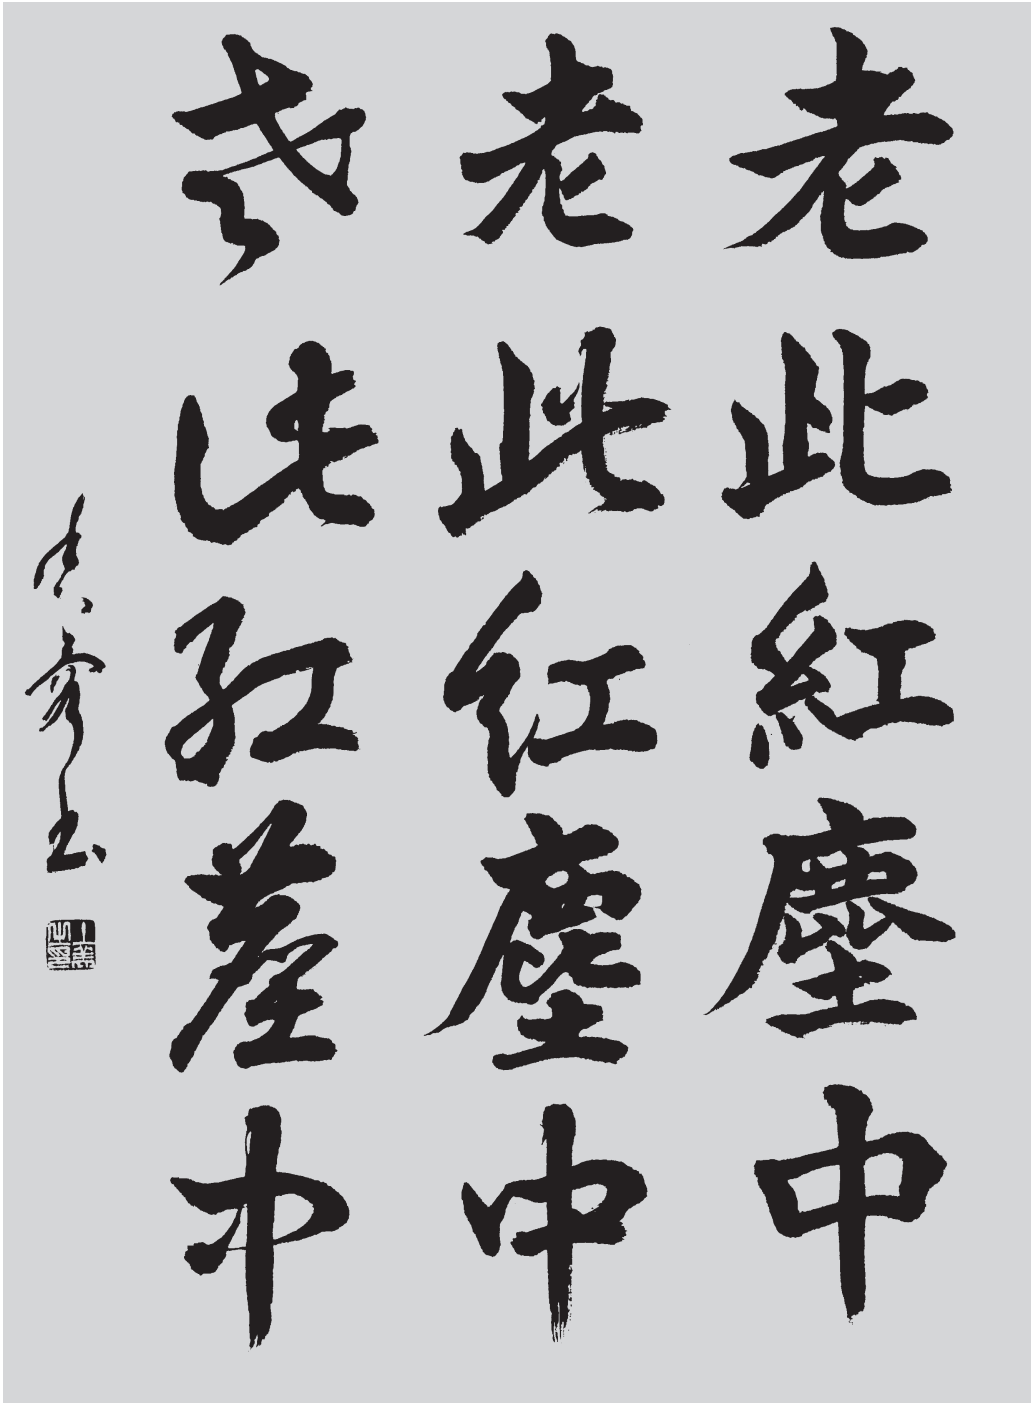 老此紅塵中
老此紅塵中
老此紅塵中